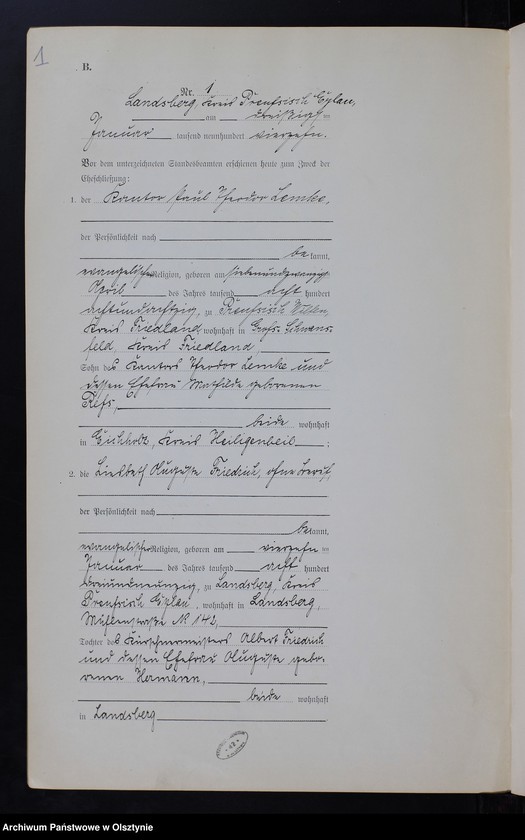 1
B.
Nr. 1
Landsberg, Kreis Preußisch Eylau,
am dreißigsten
Januar tausend neunhundert vierzehn.
Vor dem unterzeichneten Standesbeamten erschienen heute zum Zweck der
Eheschließung:
1. der Kantor Paul Theodor Lemke,
der Persönlichkeit nach
bekannt,
evangelischer Religion, geboren am siebenundzwanzigsten
April des Jahres tausend acht hundert
achtundachtzig, zu Preußisch Wilten,
Kreis Friedland, wohnhaft in Groß-Schwans-
feld, Kreis Friedland
Sohn des Kantors Theodor Lemke und
dessen Ehefrau Mathilde geborenen
beide wohnhaft
in Eichholz, Kreis Heiligenbeil;
2. die Liesbeth Auguste Friedrich, ohne Beruf,
der Persönlichkeit nach
bekannt,
evangelischer Religion, geboren am vierzehnten
Januar des Jahres tausend acht hundert
dreiundneunzig, zu Landsberg, Kreis
Preußisch Eylau, wohnhaft in Landsberg,
Mühlenstraße № 142,
Tochter des Kürschnermeisters Albert Friedrich
und dessen Ehefrau Auguste gebo-
renen Hermann,
beide wohnhaft
in Landsberg
Archiwum Państwowe w Olsztynie